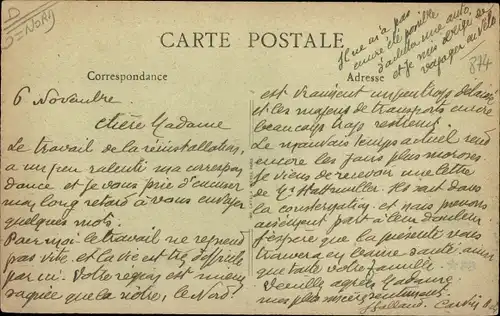 D=NORD
CARTE POSTALE
Correspondance
Adresse
Il ne m'a pas
encore été possible
d'acheter une auto,
et je suis obligé de
voyager au vélo
874
6 Novembre
Chère Madame
Le travail de la réinstallation,
a un peu ralenti ma correspon
dance et je vous prie d'excuser
mon long retard à vous envoyer
quelques mots.
Pour moi le travail ne reprend
pas vite et la vie est très difficile
par ici. Votre région est mieux
que la nôtre, le Nord
est vraiment un peu trop délaissé
et les moyens de transports encore
beaucoup trop restreint.
Le mauvais temps actuel rend
encore les jours plus moroses.
Je viens de recevoir une lettre
de Ils sont dans
la consternation et nous prenons
aisément part à leur douleur
J'espère que la présente vous
trouvera en bonne santé ainsi
que toute votre famille.
Veuillez agréer Madame
mes plus sincères sentiments.